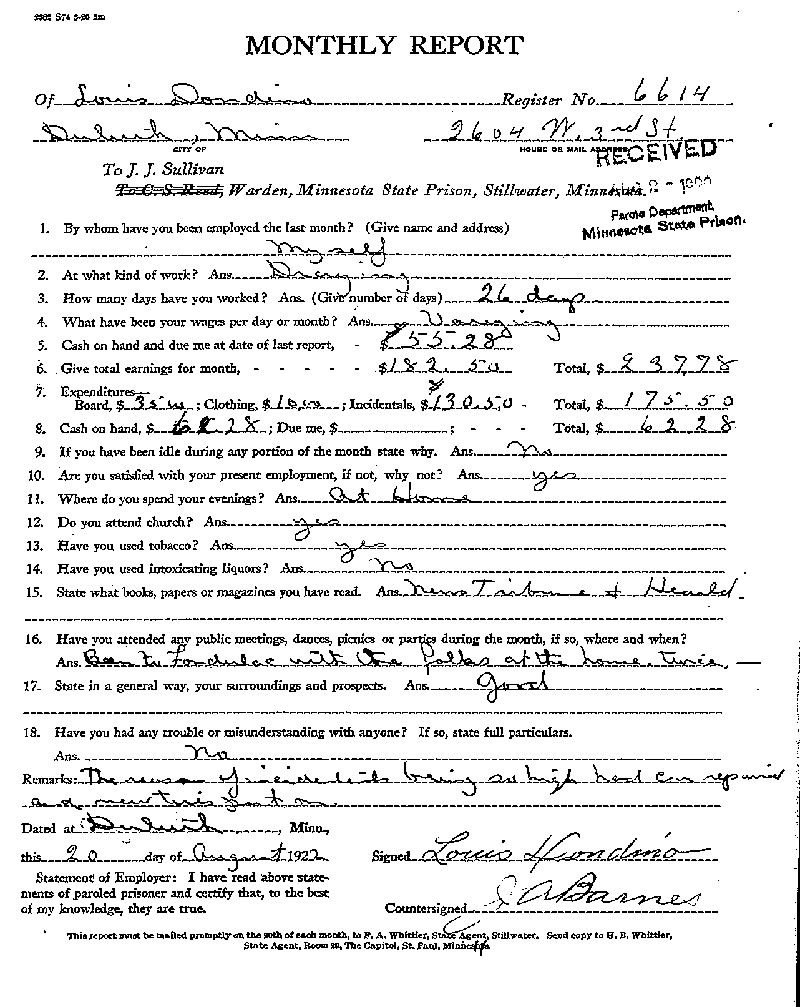 2382 S74 5-20 2m
MONTHLY REPORT
Of Louis Dondino Register No. 6614
Duluth, Minn 2604 W. 3rd St.
CITY OF HOUSE OR MAIL ADDRESS
RECEIVED
To J. J. Sullivan
To C. S. Reed, Warden, Minnesota State Prison, Stillwater, Minn
Parole Department
Minnesota State Prison.
1. By whom have you been employed the last month? (Give name and address)
Myself
2. At what kind of work? Ans. Draying
3. How many days have you worked? Ans. (Give number of days) 26 days
4. What have been your wages per day or month? Ans. Vareying
5. Cash on hand and due me at date of last report, - $55.28
6. Give total earnings for month, - - - - - $182.50 Total, $ 237.78
7. Expenditures—
Board, $35.00; Clothing, $10.00; Incidentals, $130.50 - Total, $ 175.50
8. Cash on hand, $ 62.28; Due me, $ ; - - - Total, $ 62.28
9. If you have been idle during any portion of the month state why. Ans. No
10. Are you satisfied with your present employment, if not, why not? Ans. yes
11. Where do you spend your evenings? Ans. At Home
12. Do you attend church? Ans. yes
13. Have you used tobacco? Ans. yes
14. Have you used intoxicating liquors? Ans. No
15. State what books, papers or magazines you have read. Ans. News Tribune & Herald
16. Have you attended any public meetings, dances, picnics or parties during the month, if so, where and when?
Ans. Ben to Fondulac with the folks at the home twice,
17. State in a general way, your surroundings and prospects. Ans. good
18. Have you had any trouble or misunderstanding with anyone? If so, state full particulars.
Ans. No
Remarks: The reason of incidentils being so high had car repaired
and new tires put on
Dated at Duluth, Minn.,
this 20 day of August 1922 Signed Louis Dondino
Statement of Employer: I have read above state-
ments of paroled prisoner and certify that, to the best
of my knowledge, they are true. Countersigned J A Barnes
This report must be mailed promptly on the 20th of each month, to F. A. Whittier, State Agent, Stillwater. Send copy to F. A. Whittier,
State Agent, Room 20, The Capitol, St. Paul, Minnesota